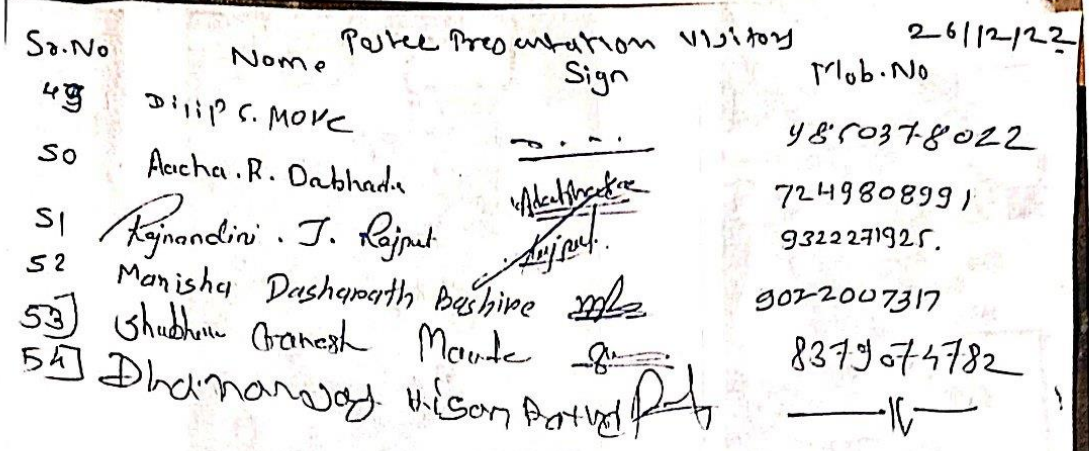 Postee Presentation Visitors 26/12/22
Sr.No Name Sign Mob.No
49 Dilip S. MORE 9850378022
50 Aacha.R. Dabhade 7249808991
51 Rajnandini. J. Rajput 9322271925.
52 Manisha Dasharath Bashire 9022007317
53] Ganesh 8379074782
54]